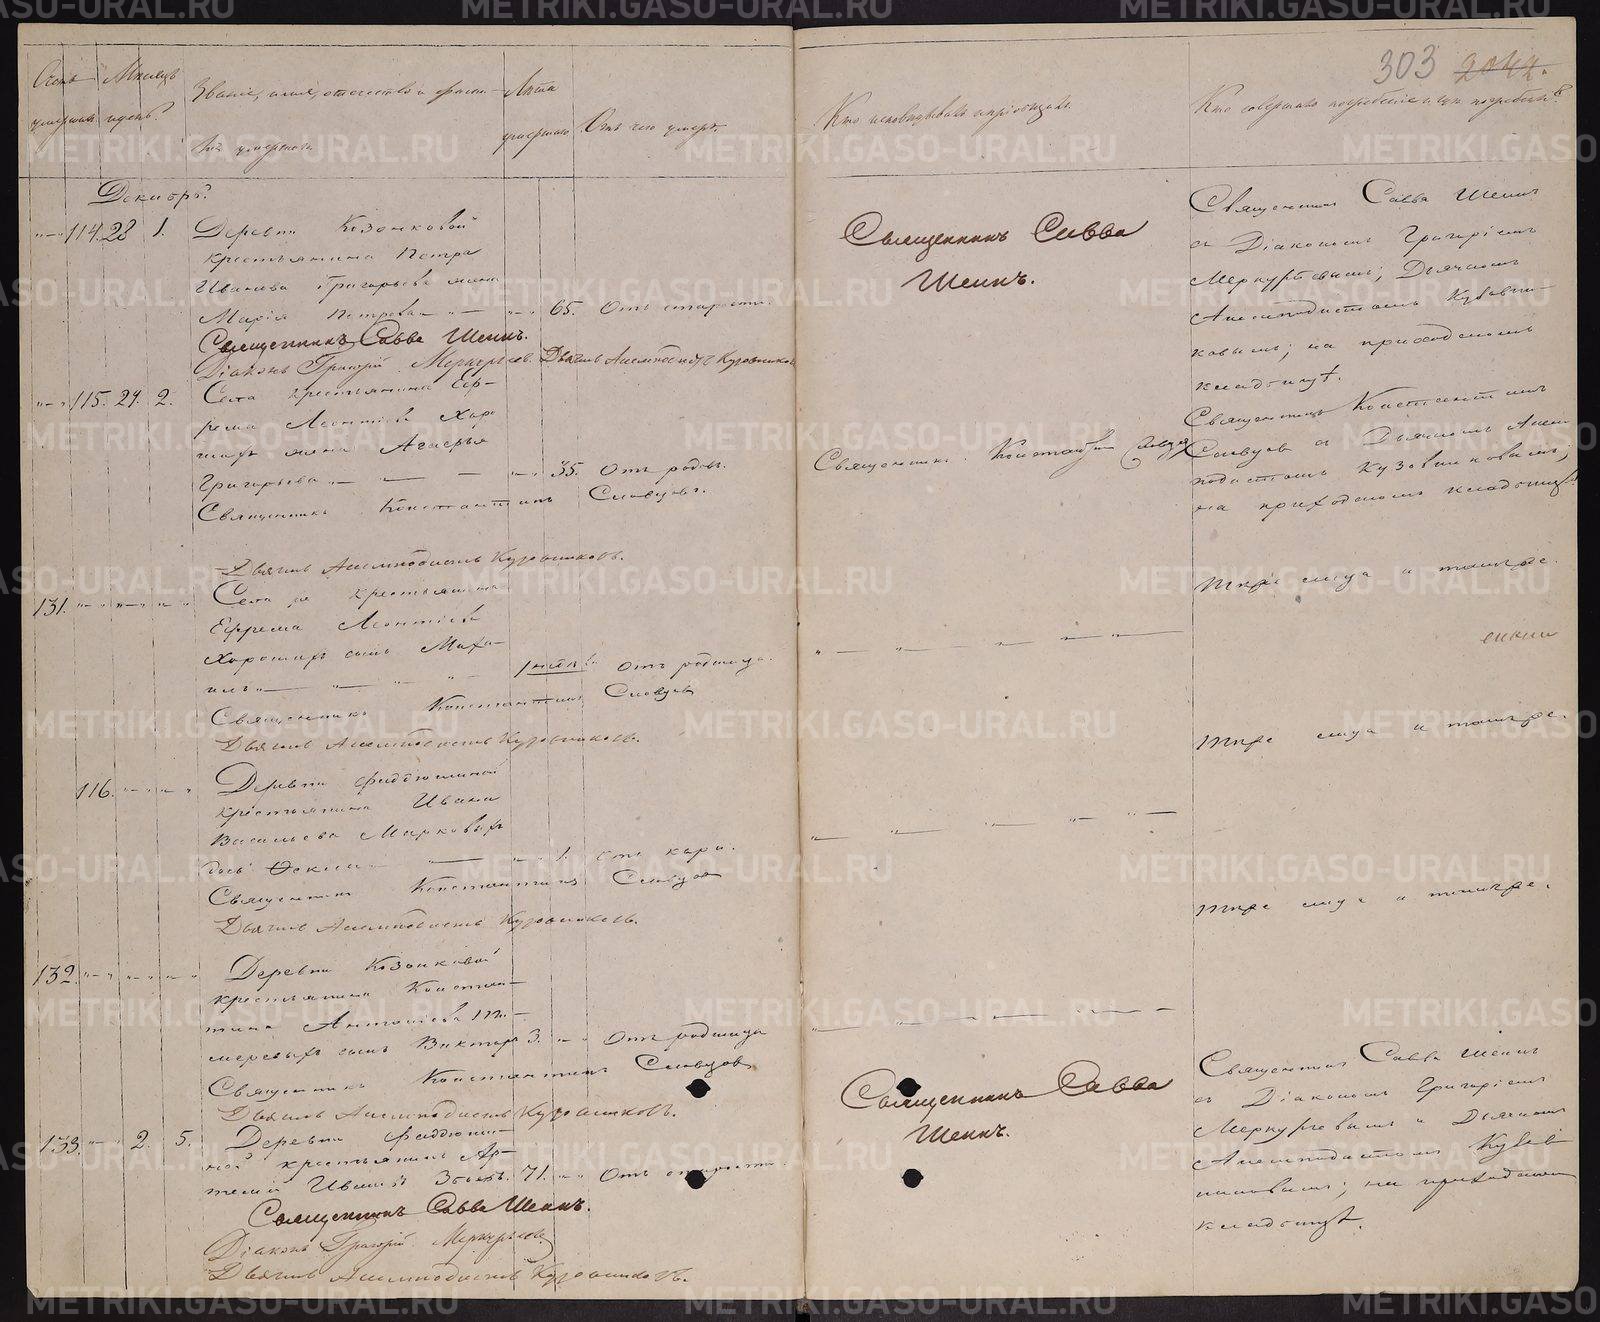 303 2042.
Счетъ Мѣсяцъ Званіе, имя, отчество и фами- Лѣта
умершихъ и день. умершаго. Отъ чего умеръ. Кто исповѣдывалъ и пріобщалъ. Кто совершалъ погребеніе и гдѣ погребены.
лія умершихъ
Декабрь.
114. 28 1. Деревни Козонковой
крестьянина Петра
Иванова Григорьева жена
Марія Петрова 65. Отъ старости.
Священникъ Савва Шеинъ.
Діаконъ Григорій Меркурьевъ. Дьячекъ Анемподистъ Кузовниковъ
Священникъ Савва
Шеинъ.
Священникъ Савва Шеинъ
съ Діакономъ Григоріемъ
Меркурьевымъ, Дьячкомъ
Анемподистомъ Кузовни-
ковымъ; на приходскомъ
кладбищѣ.
115. 29. 2. Села крестьянина Еф-
рема Леонтіева Хоро
шихъ жена Агафья
Григорьева 35. Отъ родовъ.
Священникъ Константинъ Словцовъ.
Дьячекъ Анемподистъ Кузовниковъ.
Священникъ Константинъ Словцовъ
Священникъ Константинъ
Словцовъ съ Дьячкомъ Анем
подистомъ Кузовниковымъ;
на приходскомъ кладбищѣ.
131. Села крестьянина
Ефрема Леонтіева
Хорошихъ сынъ Миха-
илъ Отъ родимца.
Священникъ Константинъ Словцовъ
Дьячекъ Анемподистъ Кузовниковъ.
Тѣже лица и тамъ же.
116. Деревни
крестьянина Ивана
Васильева Марковыхъ
дочь 1. отъ кори.
Священникъ Константинъ Словцовъ
Дьячекъ Анемподистъ Кузовниковъ.
Тѣже лица и тамъ же.
132. Деревни Козонковой
крестьянина Констан-
тина Антоніева
сынъ Викторъ 3. Отъ родимца
Священникъ Константинъ Словцовъ
Дьячекъ Анемподистъ Кузовниковъ.
Тѣже лица и тамъ же.
133. 2. 5. Деревни
ной крестьянинъ Ар-
темій Ивановъ 71. Отъ старости.
Священникъ Савва Шеинъ.
Діаконъ Григорій Меркурьевъ
Дьячекъ Анемподистъ Кузовниковъ.
Священникъ Савва
Шеинъ.
Священникъ Савва Шеинъ
съ Діакономъ Григоріемъ
Меркурьевымъ и Дьячкомъ
Анемподистомъ Кузов
никовымъ; на приходскомъ
кладбищѣ.
METRIKI.GASO-URAL.RU